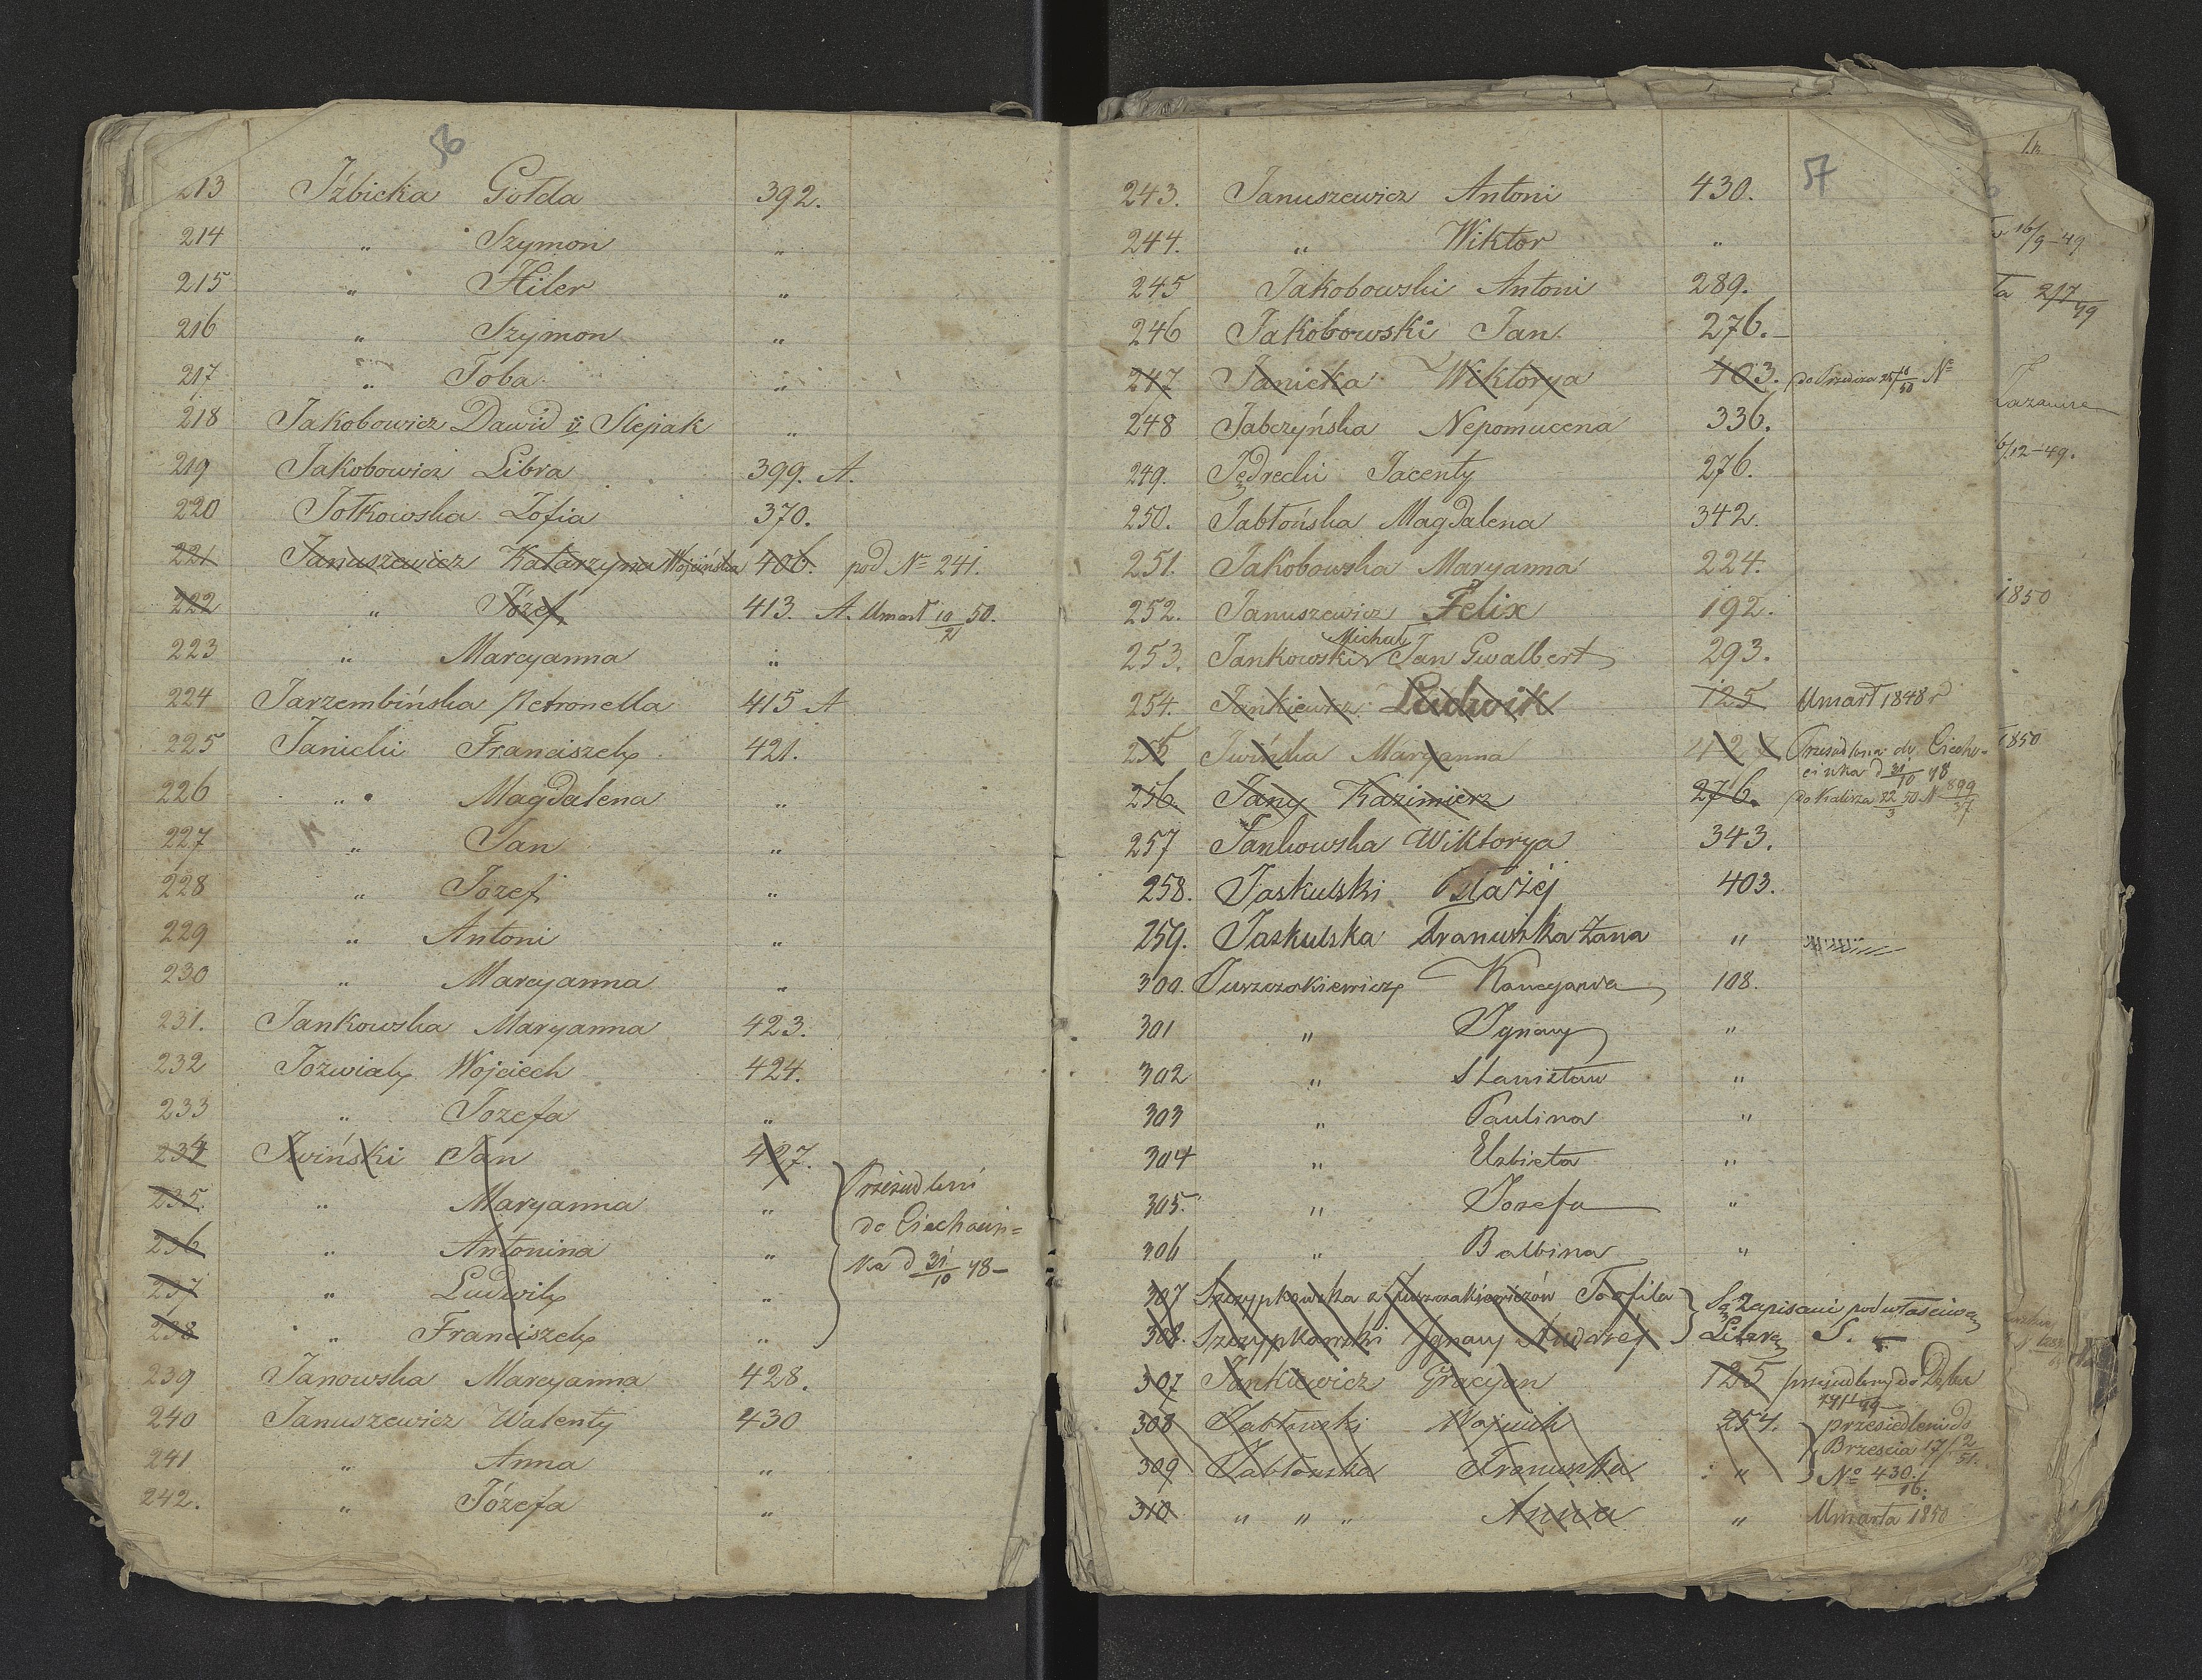 56
213 Iźbicka Gołda 392.
214 " Szymon "
215 " Hiler "
216 " Szymon "
217 " Toba "
218 Jakobowicz Dawid v. Slejiak "
219 Jakobowicz Libra 399. A.
220 Jołkowska Zofia 370.
221 Januszewicz Katarzyna Wojcińska 406. pod No 241.
222 " Józef 413. A. Umarł 10/2 50.
223 " Maryanna "
224 Jarzembińska Petronella 415 A
225 Janicki Franciszek 421.
226 " Magdalena "
227 " Jan "
228 " Józef "
229 " Antoni "
230 " Maryanna "
231. Jankowska Maryanna 423.
232 Jozwiak Wojciech 424.
233 " Jozefa "
234 Iwiński Jan 427.
235. " Maryanna " Przesiedleni
236 " Antonina " do Ciechocin=
237 " Ludwik " ka d 31/10 48 –
238 " Franciszek "
239 Janowska Maryanna 428.
240 Januszewicz Walenty 430
241 " Anna "
242. " Józefa "
57
243. Januszewicz Antoni 430.
244. " Wiktor "
245 Jakobowski Antoni 289.
246 Jakobowski Jan 276. –
247 Janicka Wiktorya 403. do No
248 Jabczyńska Nepomucena 336.
249. Jędrecki Jacenty 276.
250. Jabłońska Magdalena 342.
251. Jakobowska Maryanna 224.
252. Januszewicz Felix 192.
253. Jankowski Michał Jan Gwalbert 293.
254. Jankiewicz Ludwik 125 Umarł 1848 r
255 Iwińska Maryanna 427 Przesiedlona do Ciecho-
cinka d 31/10 48
256. Jany Kazimierz 276. do Kalisza 22/3 50 N 899/37
257 Jankowska Wiktorya 343.
258. Jaskulski Błażej 403.
259. Jaskulska Franciszka Żona "
300. Juszczakiewicz Kancyanna 108.
301 " Ignacy "
302 " Stanisław "
303 " Paulina "
304 " Elzbieta "
305. " Jozefa "
306 " Balbina "
307 Szczypkowska z Juszczakiewiczów Teofila Są Zapisani pod właściwą
308. Szczypkowski Ignacy Andrzej Literą S.
307 Jankiewicz Gracyan 125 przesiedlony do Dęba
308 Jabłoński Wojciech 254. przesiedleni do
Brzescia 17/2 51.
309 Jabłońska Franciszka " No 430./16.
310 " " " Anna " Umarła 1850
16/9 – 49
ta 2/7 49
Łazaurze
6/12 – 49.
1850
1850